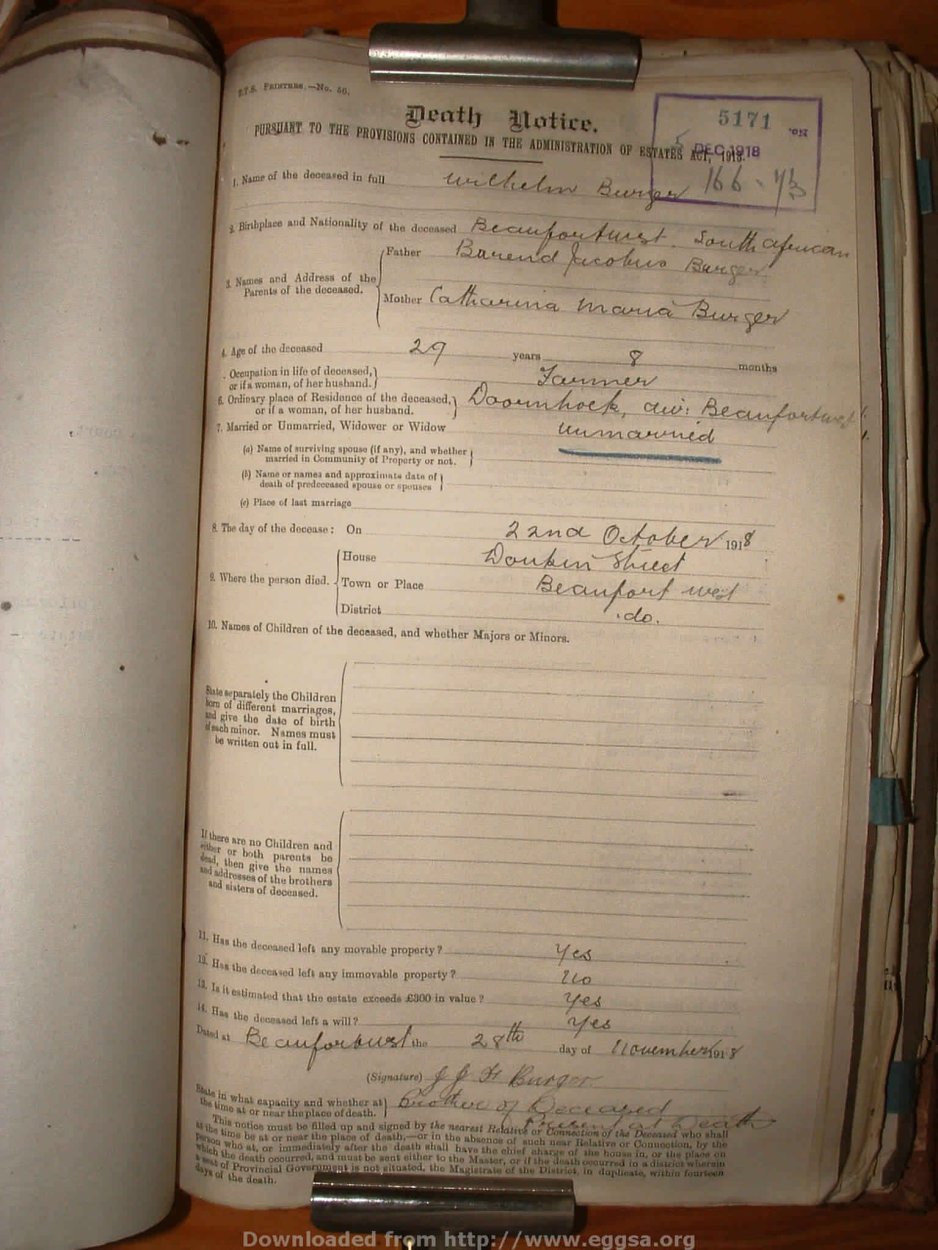 T.T.S. PRINTERS.—No. 56.
Death Notice.
PURSUANT TO THE PROVISIONS CONTAINED IN THE ADMINISTRATION OF ESTATES ACT, 1913.
5171
No.
5 DEC 1918
166 - 43
1. Name of the deceased in full Wilhelm Burger
2. Birthplace and Nationality of the deceased Beaufortwest. South african
3. Names and Address of the Parents of the deceased.
Father Barend Jacobus Burger
Mother Catharina Maria Burger
4. Age of the deceased 29 years 8 months
5. Occupation in life of deceased, or if a woman, of her husband. Farmer
6. Ordinary place of Residence of the deceased, or if a woman, of her husband. Doornhoek, div: Beaufortwest
7. Married or Unmarried, Widower or Widow unmarried
(a) Name of surviving spouse (if any), and whether married in Community of Property or not.
(b) Name or names and approximate date of death of predeceased spouse or spouses
(c) Place of last marriage
8. The day of the decease: On 22nd October 1918
9. Where the person died.
House Donkin Street
Town or Place Beaufort west
District do.
10. Names of Children of the deceased, and whether Majors or Minors.
State separately the Children
born of different marriages,
and give the date of birth
of each minor. Names must
be written out in full.
If there are no Children and
either or both parents be
dead, then give the names
and addresses of the brothers
and sisters of deceased.
11. Has the deceased left any movable property? Yes
12. Has the deceased left any immovable property? no
13. Is it estimated that the estate exceeds £300 in value? Yes
14. Has the deceased left a will? Yes
Dated at Beaufortwest the 28th day of November 1918
(Signature) J J H Burger
State in what capacity and whether at the time at or near the place of death. Brother of Deceased
Present at Death
This notice must be filled up and signed by the nearest Relative or Connection of the Deceased who shall
at the time be at or near the place of death,—or in the absence of such near Relative or Connection, by the
person who at, or immediately after the death shall have the chief charge of the house in, or the place on
which the death occurred, and must be sent either to the Master, or if the death occurred in a district wherein
a seat of Provincial Government is not situated, the Magistrate of the District, in duplicate, within fourteen
days of the death.
Downloaded from http://www.eggsa.org